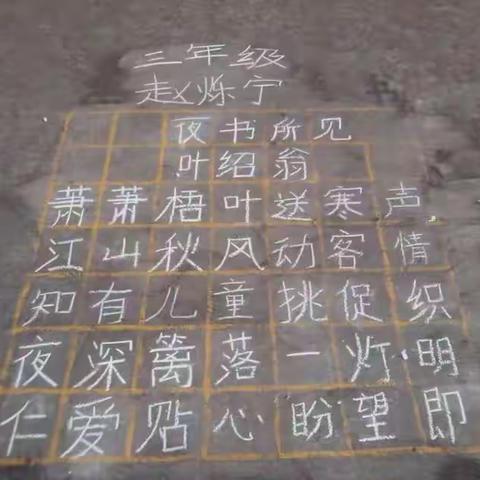 三年级
赵烁宁
夜书所见
叶绍翁
萧萧梧叶送寒声.
江山秋风动客情
知有儿童挑促织
夜深篱落一灯·明
仁爱贴心盼望即